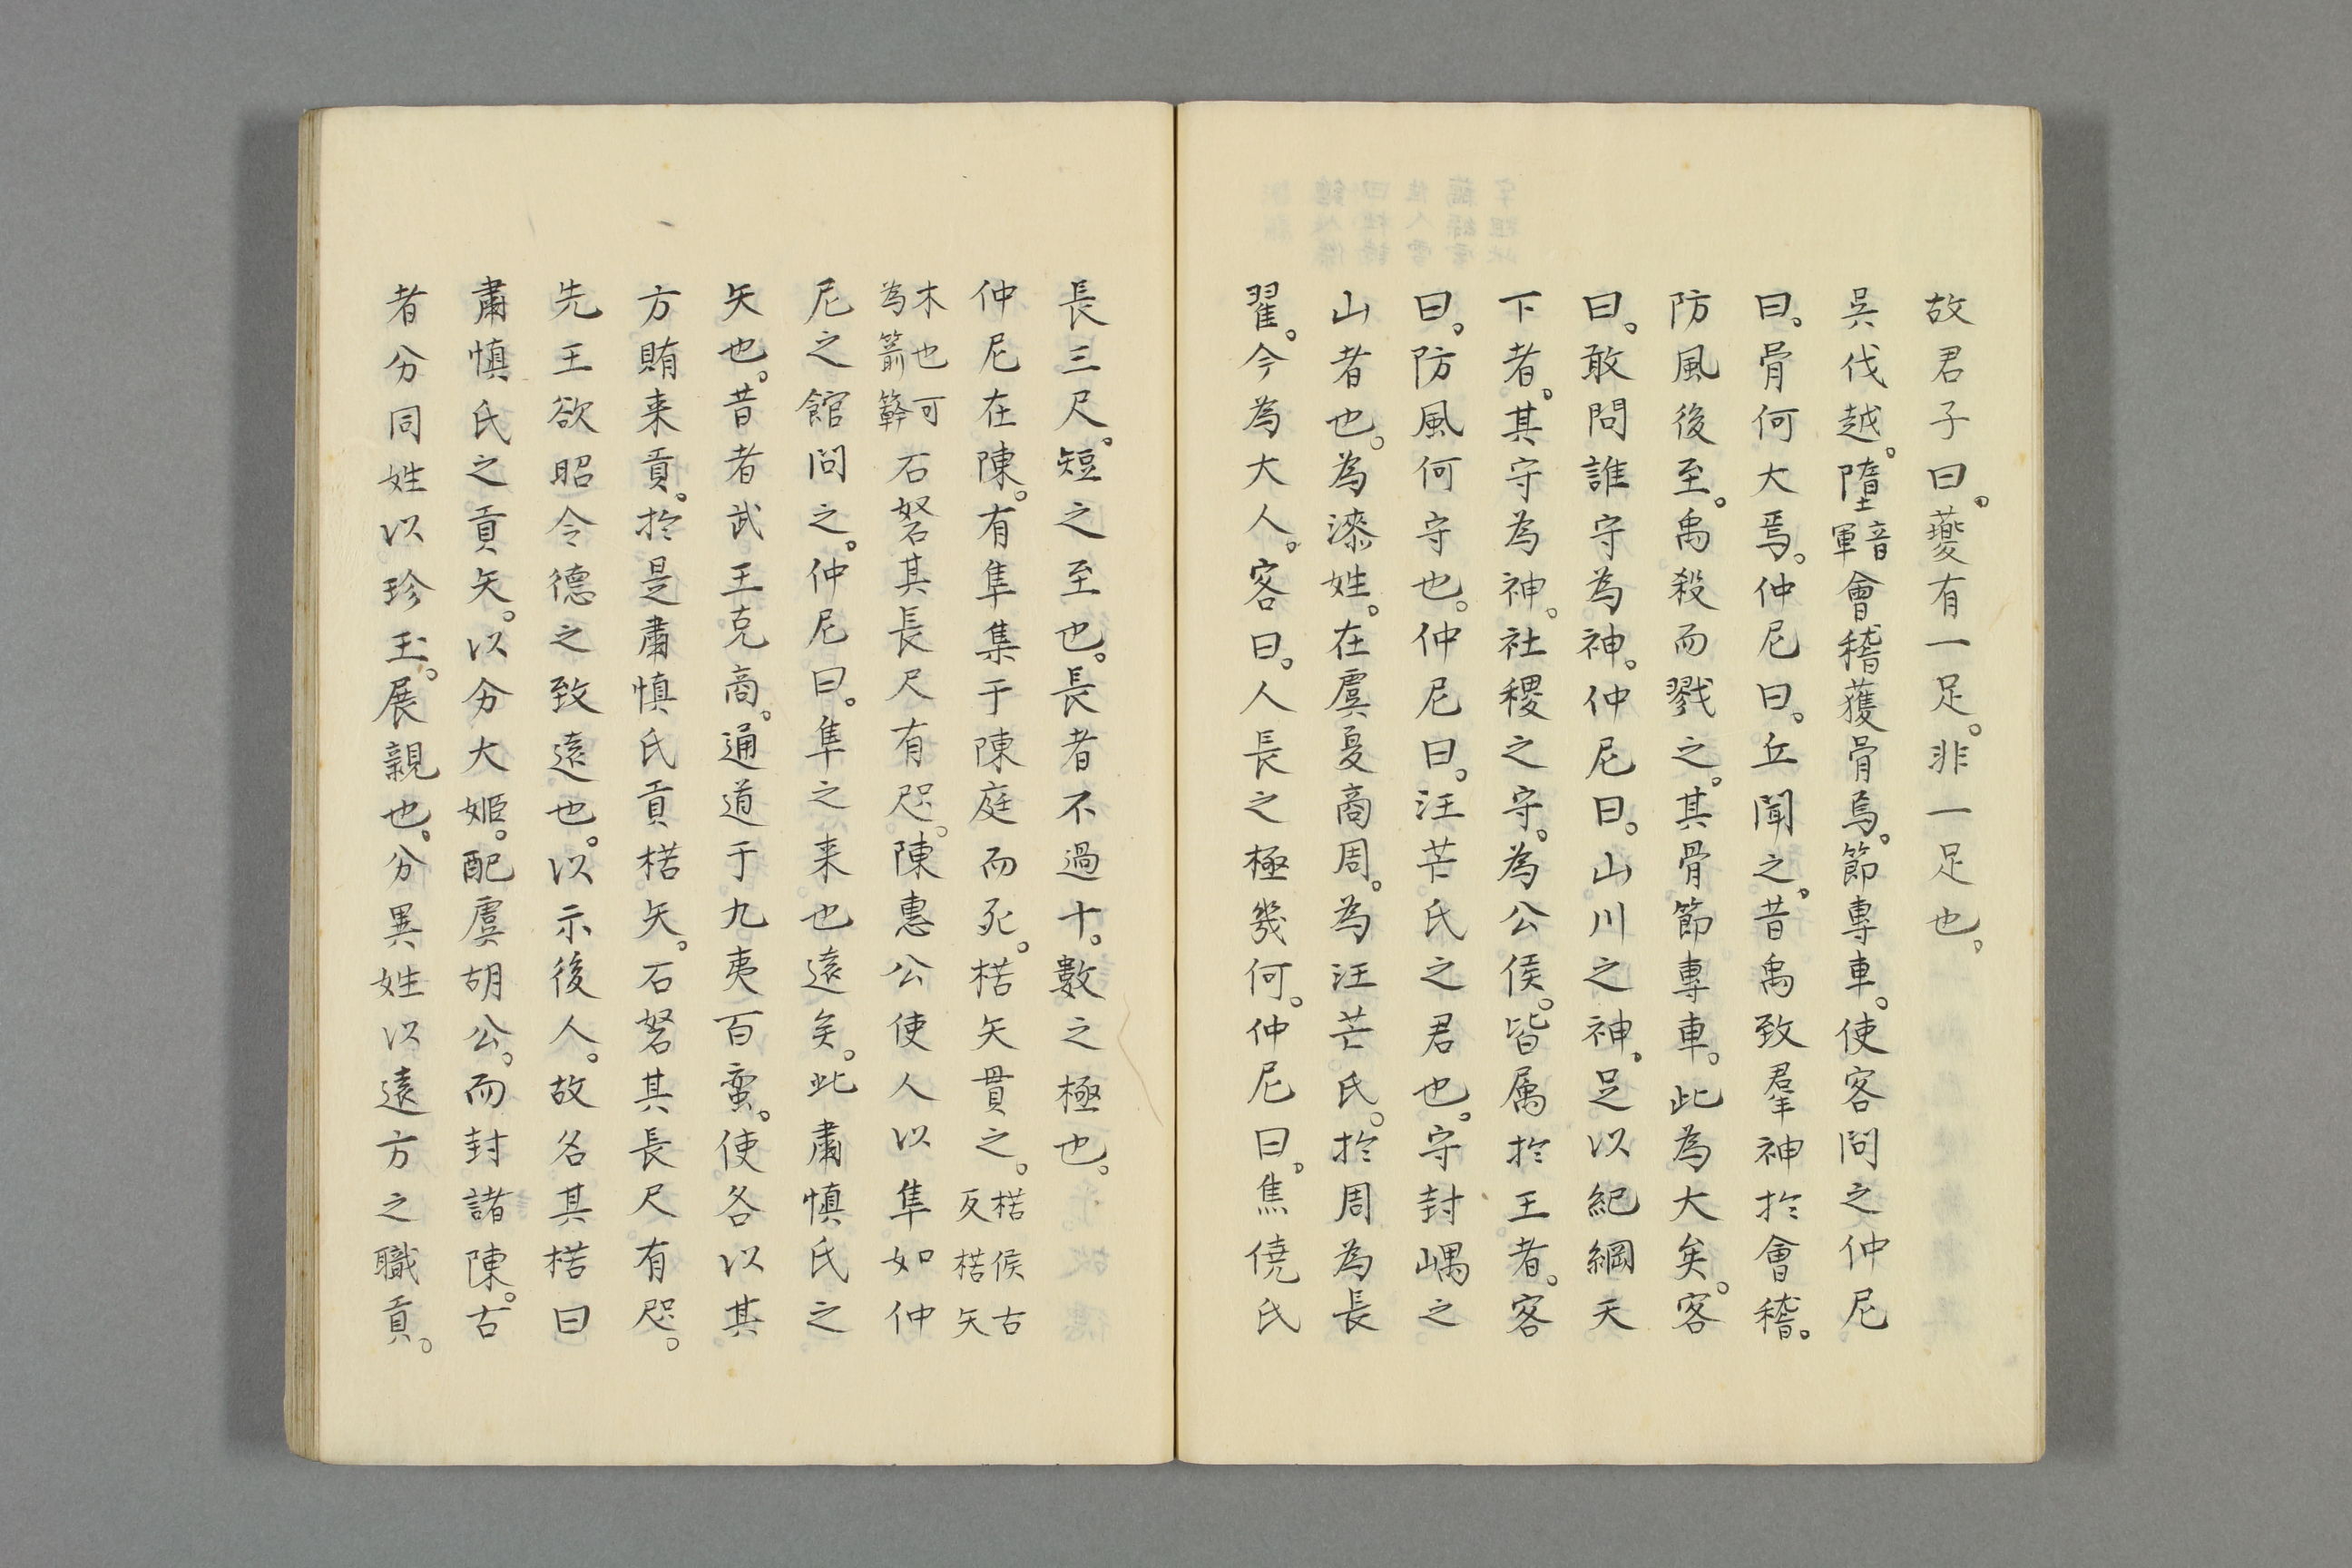 故君子曰。夔有一足。非一足也。
吳伐越。墮音軍會稽獲骨焉。節專車。使客問之仲尼
曰。骨何大焉。仲尼曰。丘聞之。昔禹致羣神於會稽。
防風後至。禹殺而戮之。其骨節專車。此為大矣。客
曰。敢問誰守為神。仲尼曰。山川之神。足以紀綱天
下者。其守為神。社稷之守。為公侯。皆属於王者。客
曰。防風何守也。仲尼曰。汪芒氏之君也。守封嵎之
山者也。為漆姓。在虞夏商周。為汪芒氏。於周為長
翟。今為大人。客曰。人長之極幾何。仲尼曰。焦僥氏
長三尺。短之至也。長者不過十。數之極也。
仲尼在陳。有隼集于陳庭而死。楛矢貫之。楛侯古反楛矢
木也可為箭簳石砮其長尺有咫。陳惠公使人以隼如仲
尼之館問之。仲尼曰。隼之来也遠矣。此肅慎氏之
矢也。昔者武王克商。通道于九夷百蛮。使各以其
方賄来貢。於是肅慎氏貢楛矢。石砮其長尺有咫。
先王欲昭令德之致遠也。以示後人。故名其楛曰
肅慎氏之貢矢。以分大姬。配虞胡公。而封諸陳。古
者分同姓以珍玉。展親也。分異姓以遠方之職貢。